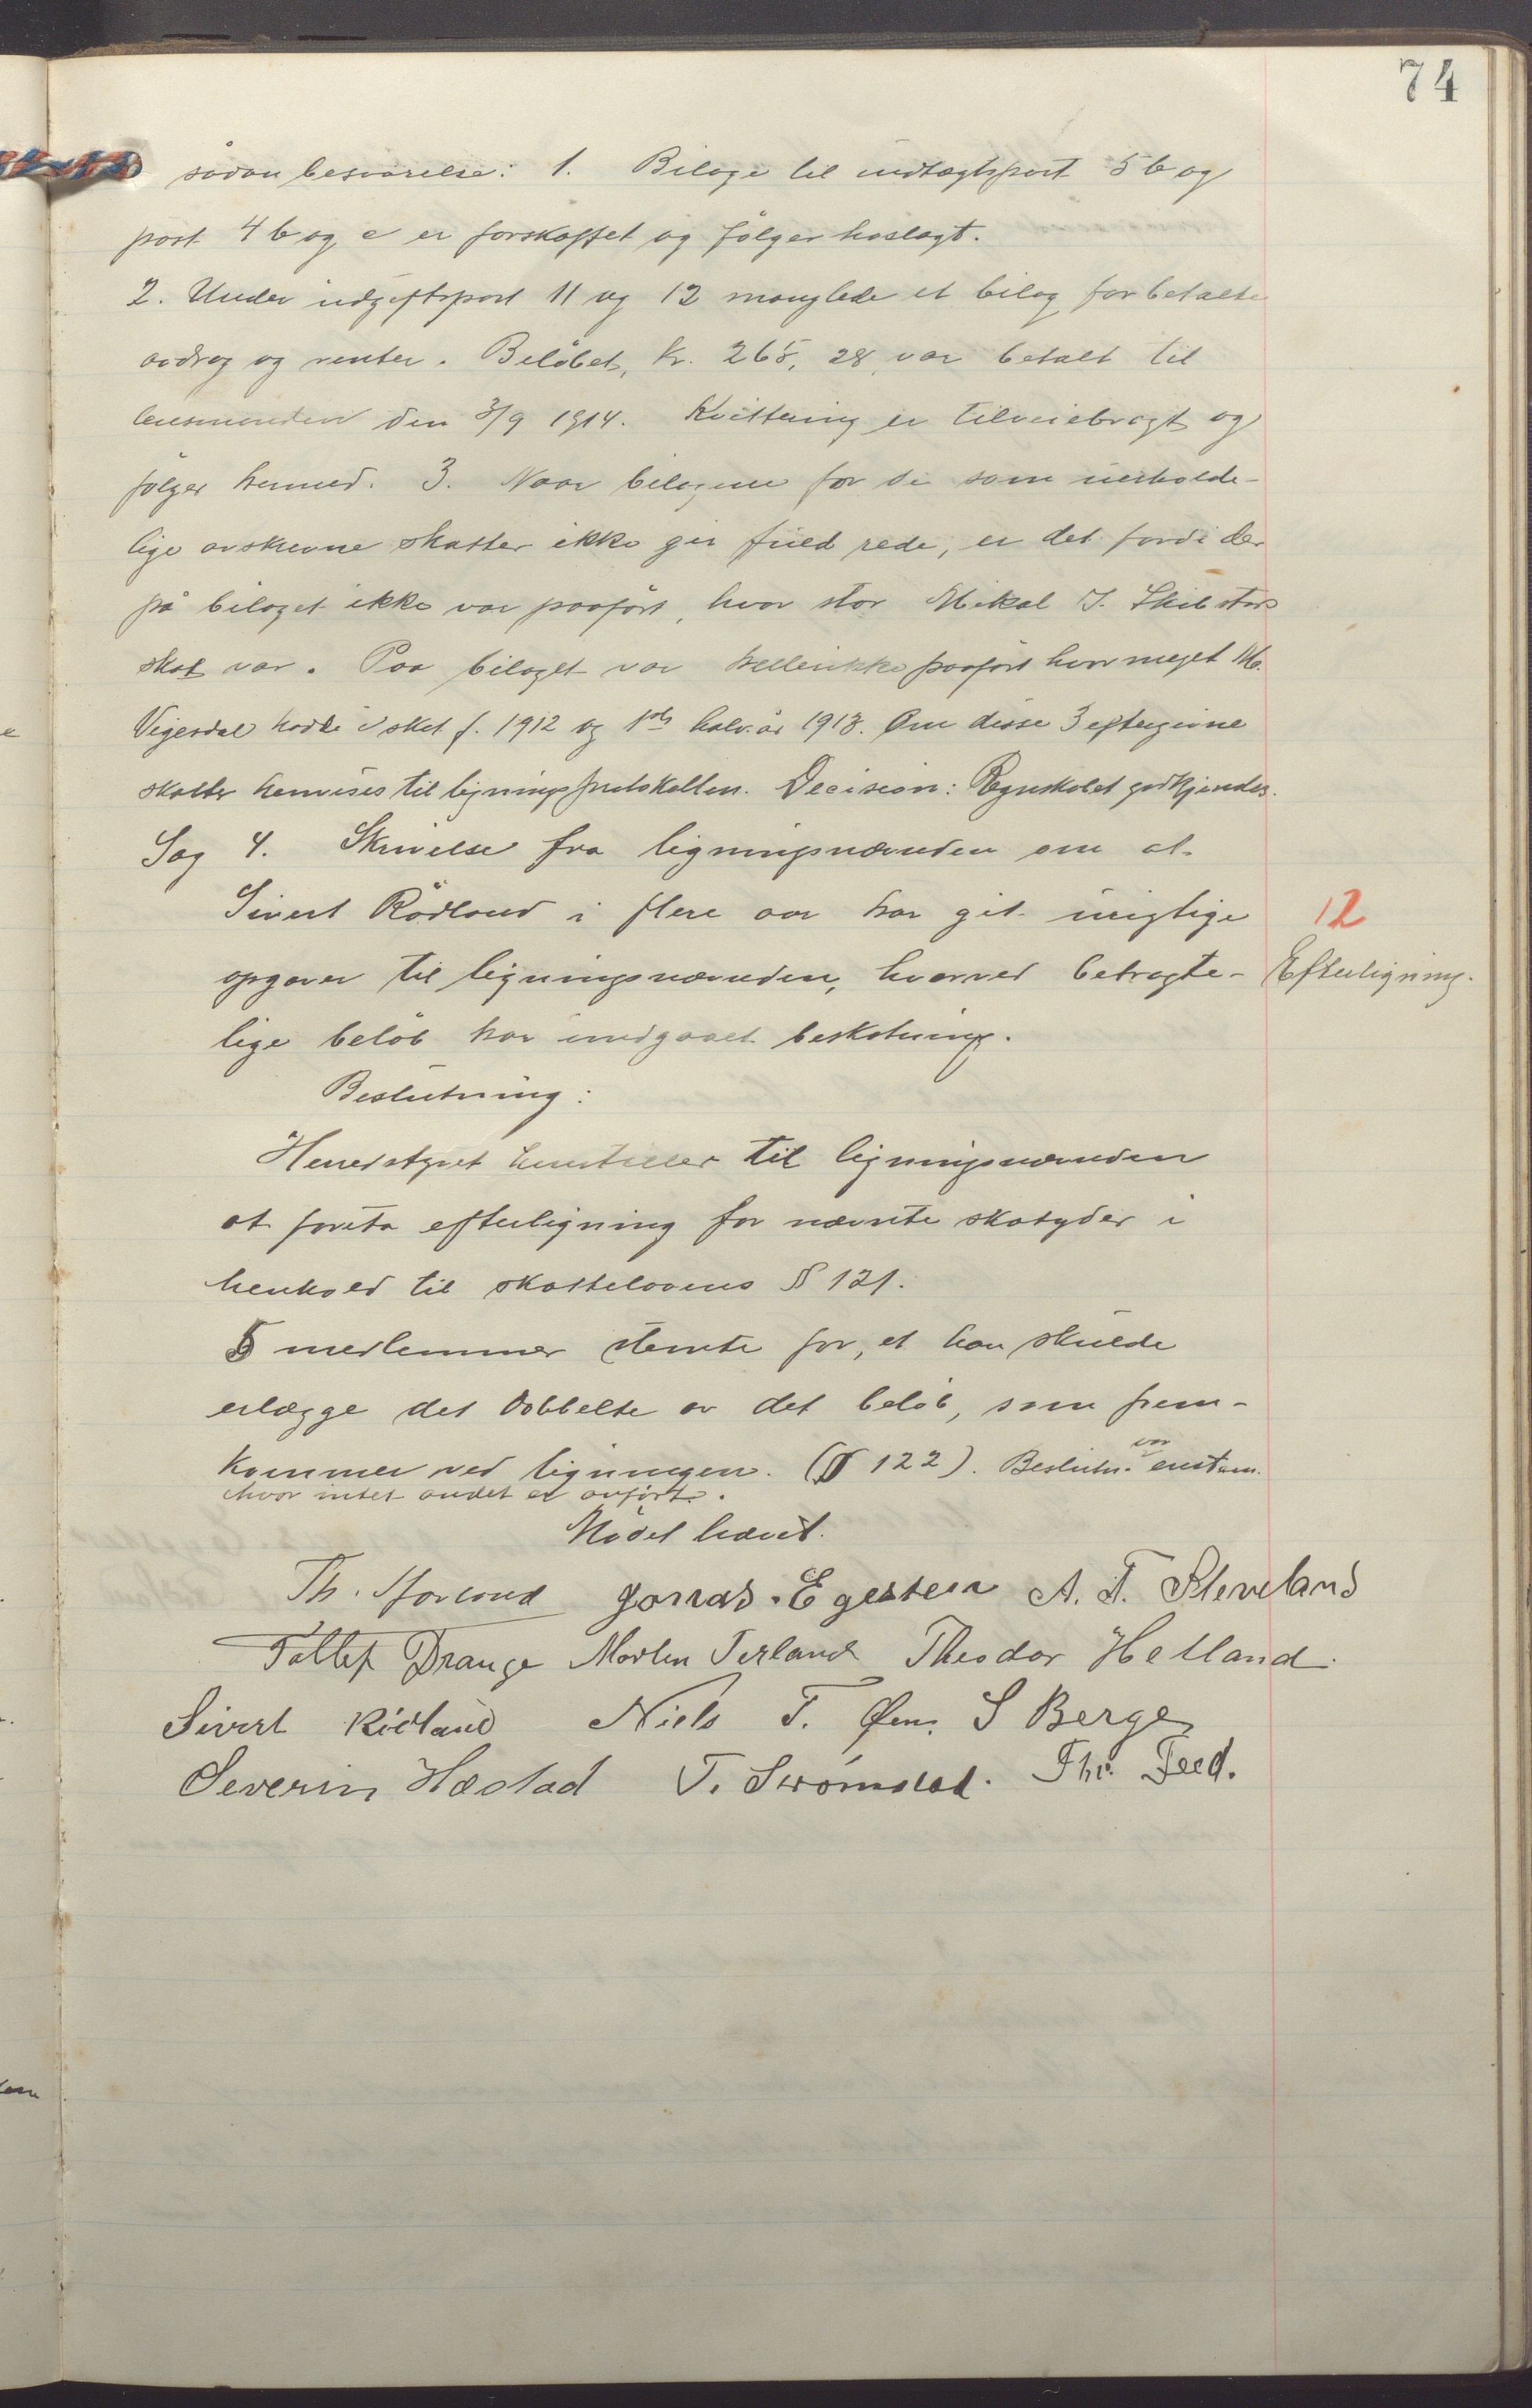 74
sådan besvarelse: 1. Bilage til indtægtspost 5 b og
post 4 b og c er forskaffet og følger hoslagt.
2. Under udgiftspost 11 og 12 manglede et bilag for betalte
avdrag og renter. Beløbet, kr. 265,28, var betalt til
lensmanden den 3/9 1914. Kvittering er tilveiebragt og
følger hermed. 3. Naar bilagene for de som uerholde-
lige avskrevne skatter ikke gir fuld rede, er det fordi der
på bilaget ikke var paaført, hvor stor Mikal J. Skibstads
skat var. Paa bilaget var hellerikke paaført hvor meget M.
Vigesdal hadde i skat f. 1912 og 1ste halv.år 1913. Om disse 3 eftergivne
skatter henvises til ligningsprotokollen. Decision: Regnskabet godkjendes.
Sag 4. Skrivelse fra ligningsnævnden om at
Sivert Rødland i flere aar har git urigtige
opgaver til ligningsnævnden, hvorved betragte-
lige beløb har undgaaet beskatning.
12
Efterligning.
Beslutning:
Herredstyret henstiller til ligningsnævnden
at foreta efterligning for nævnte skatyder i
henhold til skattelovens § 121.
5 medlemmer stemte for, at han skulde
erlægge det dobbelte av det beløb, som frem-
kommer ved ligningen. (§ 122). Beslutn. var enstem.
hvor intet andet er anført.
Mødet hævet.
Th. Jonas Egestein A. T. Kleveland
Tallef Drange Morten Terland Theodor Helland.
Sivert Rödland Niels T. Øen. S Berge
Severin Hæstad T. Strömstad. Thr. Feed.